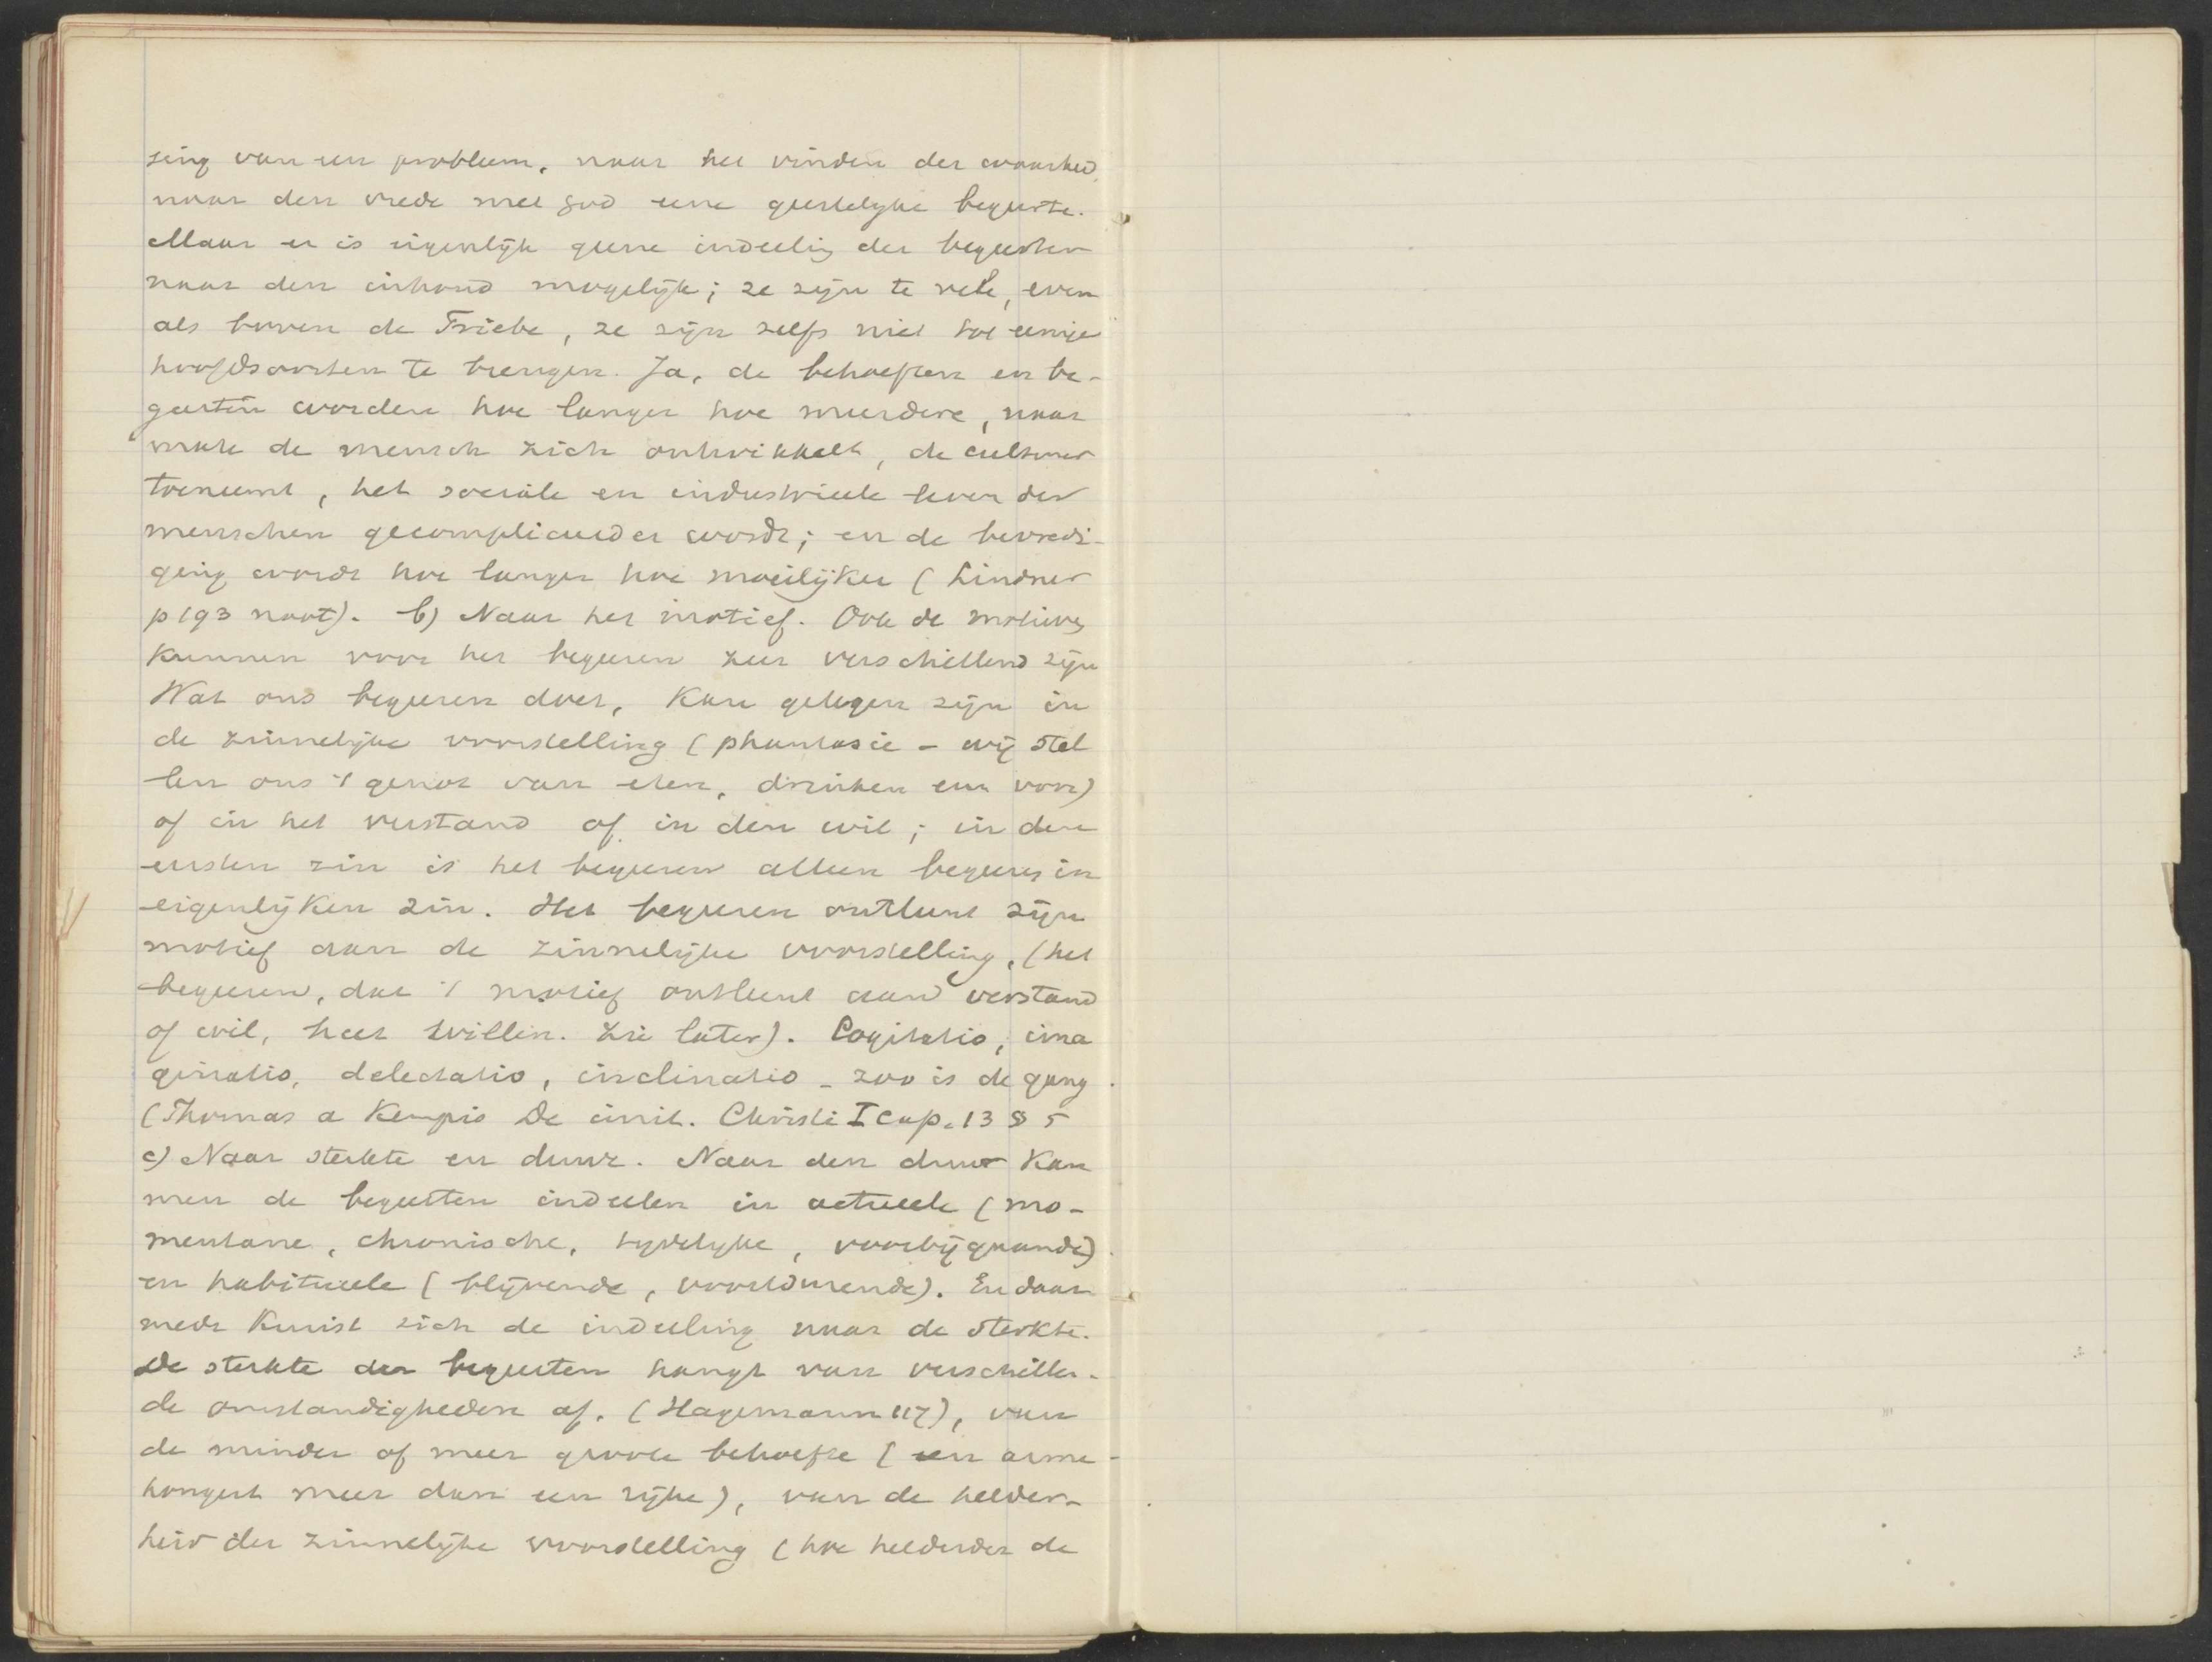 sing van een probleem, naar het vinden der waarheid
naar den vrede met God eene geestelijke begeerte.
Maar er is eigenlijk geene indeeling der begeerten
naar den inhoud mogelijk; ze zijn te vele, even
als boven de Triebe, ze zijn zelfs niet tot eenige
hoofdsoorten te brengen. Ja, de behoeften en be-
geerten worden hoe langer hoe meerdere, naar
mate de mensch zich ontwikkelt, de cultuur
toeneemt, het sociale en industrieele leven der
menschen gecompliceerder wordt; en de bevredi-
ging wordt hoe langer hoe moeilijker (Lindner
p 193 noot). b) Naar het motief. Ook de motieven
kunnen voor het begeeren zeer verschillend zijn
Wat ons begeeren doet, kan gelegen zijn in
de zinnelijke voorstelling (phantasie - wij stel
len ons 't genot van eten, drinken enz voor)
of in het verstand of in den wil; in den
eersten zin is het begeeren alleen begeeren in
eigenlijken zin. Het begeeren ontleent zijn
motief aan de zinnelijke voorstelling, (het
begeeren, dat 't motief ontleent aan verstand
of wil, heet willen. Zie later). Cogitatio, ima
ginatio, delectatio, inclinatio - zoo is de gang.
(Thomas a Kempis De imit. Christi I cap. 13 § 5
c) Naar sterkte en duur. Naar den duur kan
men de begeerten indeelen in actueele (mo-
mentane, chronische, tijdelijke, voorbijgaande)
en habitueele (blijvende, voortdurende). En daar
mede kruist zich de indeeling naar de sterkte.
De sterkte der begeerten hangt van verschillen-
de omstandigheden af. (Hagemann 117), van
de minder of meer groote behoefte (een arme
hongert meer dan een rijke), van de helder-
heid der zinnelijke voorstelling (hoe helderder de